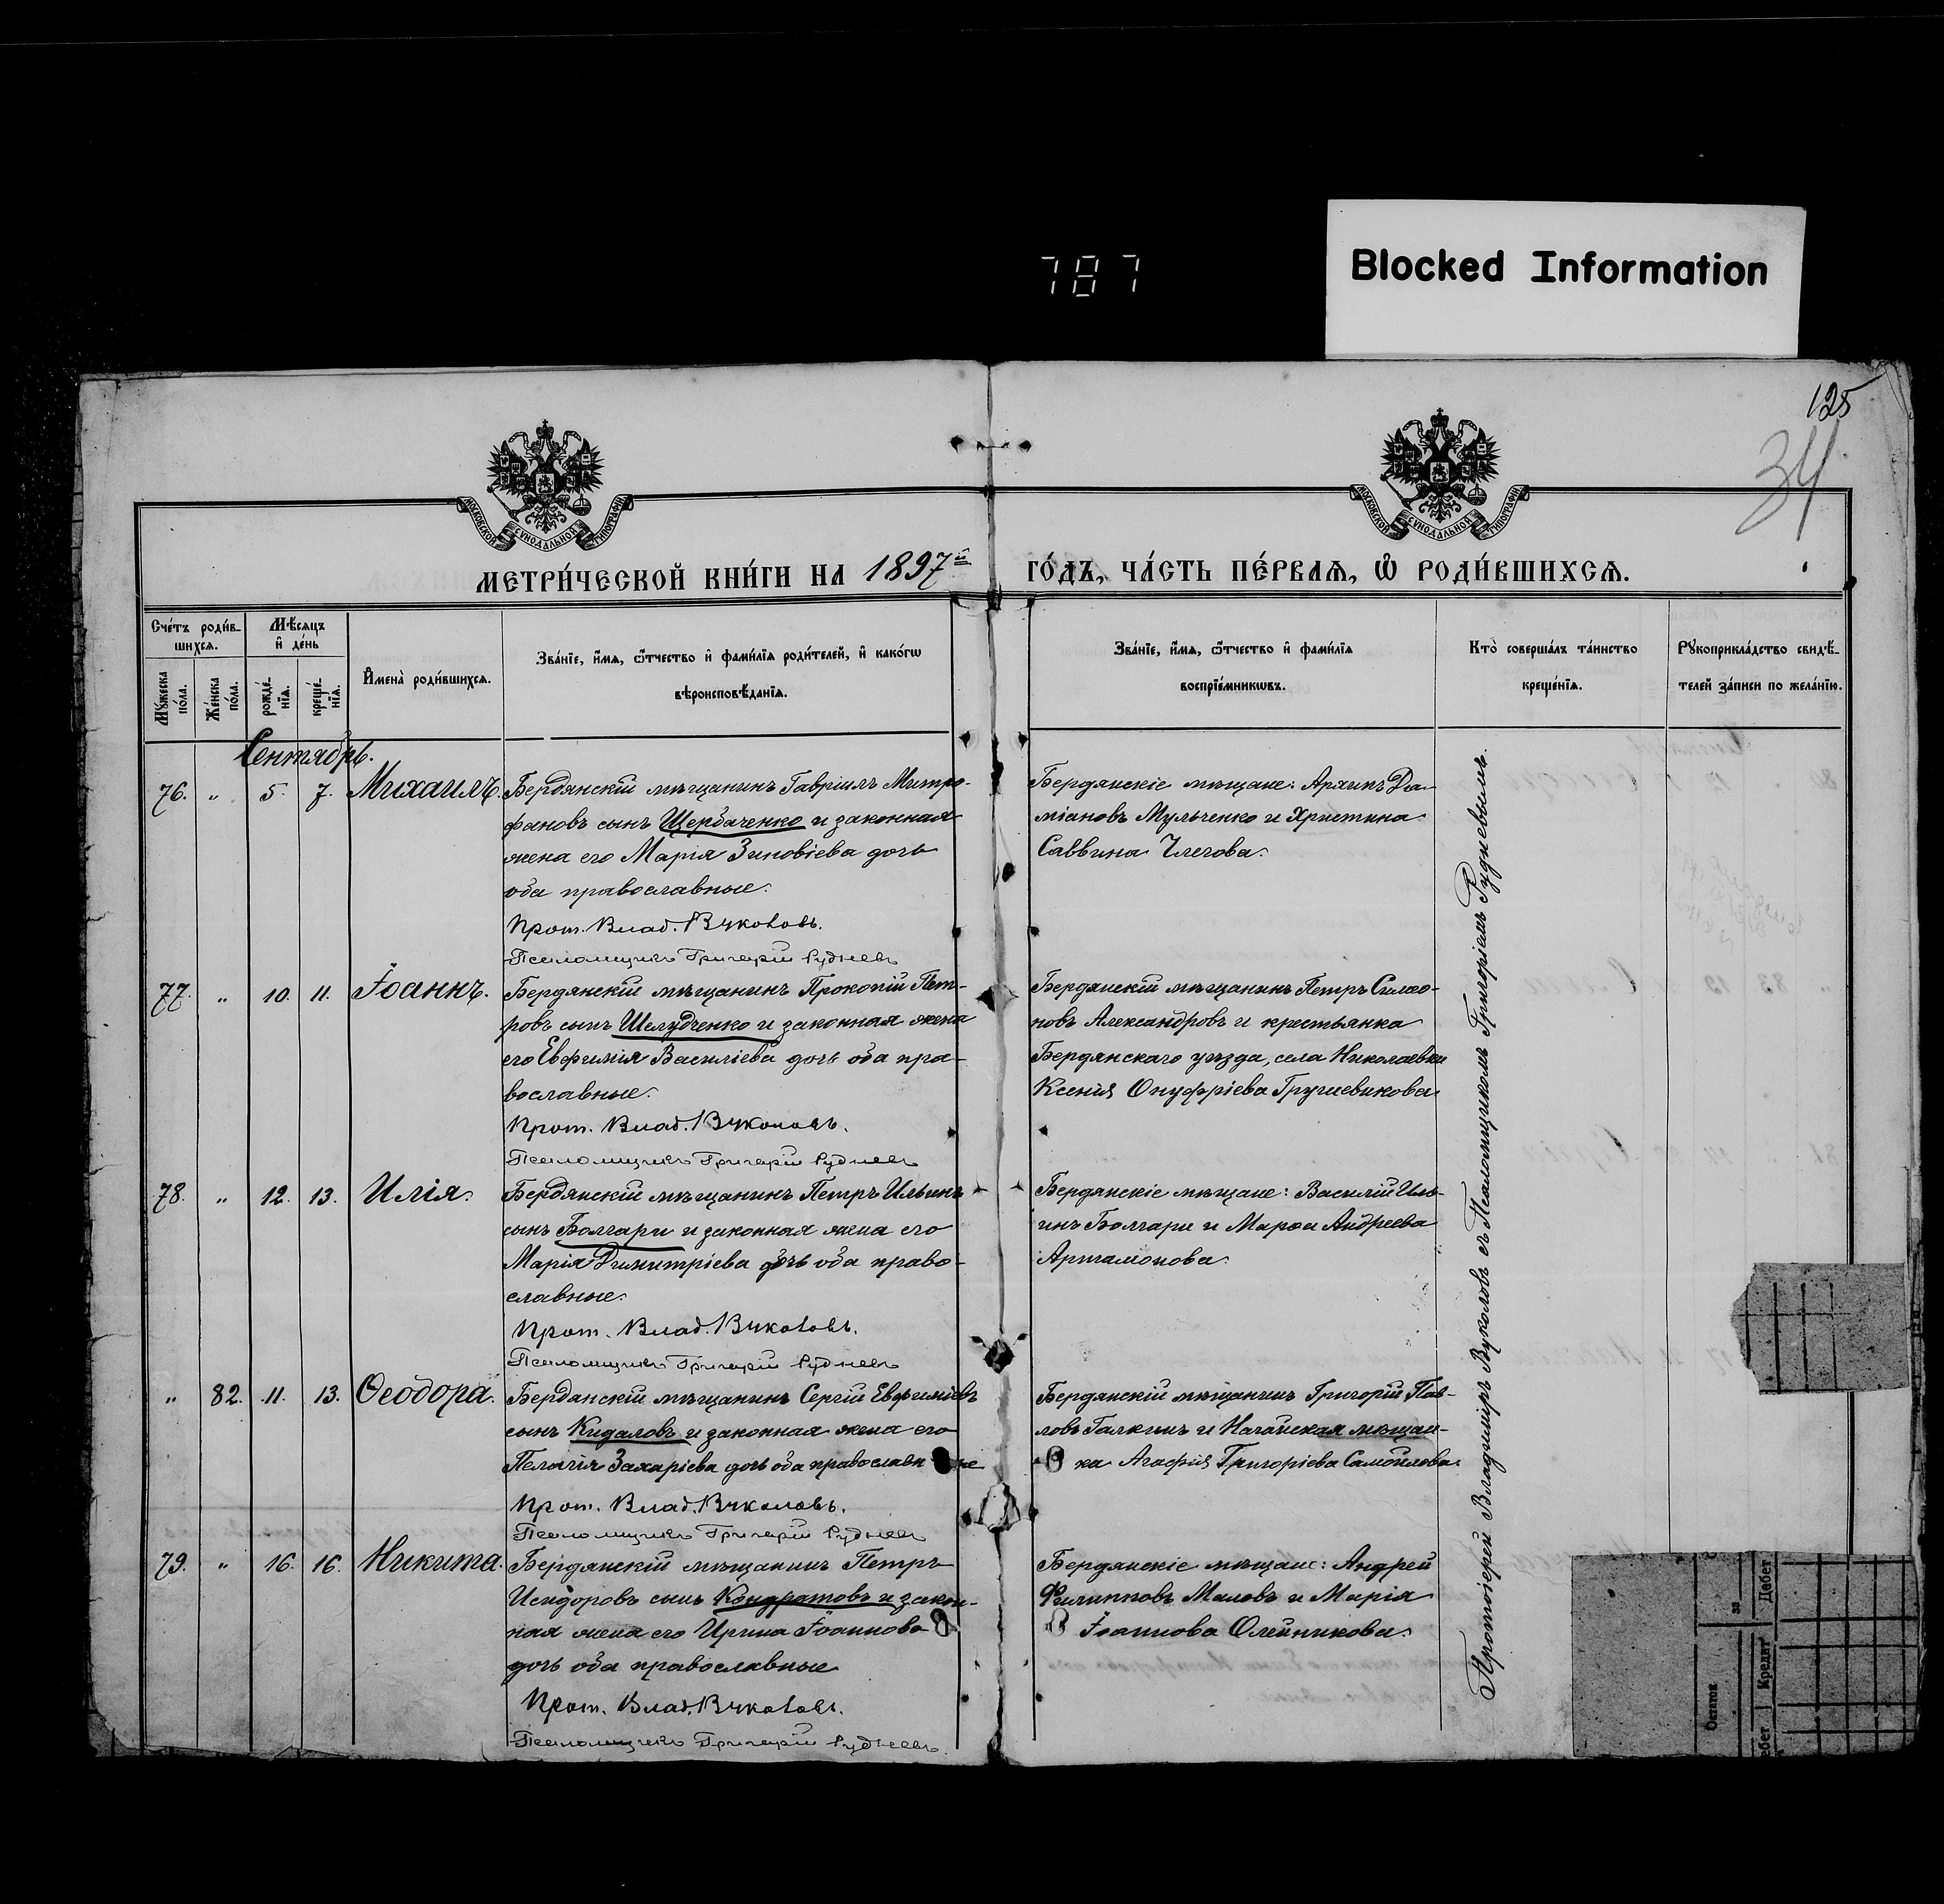 787
Blocked Information
125
34
МОСКОВСКОЙ СѴНОДАЛЬНОЙ ТИПОГРАФІИ
МОСКОВСКОЙ СѴНОДАЛЬНОЙ ТИПОГРАФІИ
МЕТРИ́ЧЕСКОЙ КНИ́ГИ НА 1897й ГО́ДЪ, ЧА́СТЬ ПЕ́РВАѦ, Ѡ҆ РОДИ́ВШИХСѦ.
Сче́тъ роди́в-
шихсѧ.
Мꙋ́жеска по́ла.
Же́нска по́ла.
Мѣ́сѧцъ
и҆ де́нь
рожде́-
нїѧ.
креще́-
нїѧ.
И҆мена̀ роди́вшихсѧ.
Зва́нїе, и҆́мѧ, ѻ҆́тчество и҆ фами́лїѧ роди́телей, и҆ како́гѡ
вѣроисповѣ́данїѧ.
Зва́нїе, и҆́мѧ, ѻ҆́тчество и҆ фами́лїѧ
воспрїе́мникѡвъ.
Кто̀ соверша́лъ та́инство
креще́нїѧ.
Рꙋкоприкла́дство свидѣ́-
телей за́писи по жела́нїю.
Сентябрь.
76. " 5. 7. Михаилъ. Бердянскій мѣщанинъ Гавріилъ Митро-
фановъ сынъ Щербаченко и законная
жена его Марія Зиновіева дочь
оба православные.
Прот. Влад. Вуколовъ.
Псаломщикъ Григорій Рудневъ
Бердянскіе мѣщане: Архипъ Да-
міановъ Мульченко и Христина
Саввина
77. " 10. 11. Іоаннъ. Бердянскій мѣщанинъ Прокопій Пет-
ровъ сынъ Шелудченко и законная жена
его Евфимія Василіева дочь оба пра-
вославные.
Прот. Влад. Вуколовъ.
Псаломщикъ Григорій Рудневъ
Бердянскій мѣщанинъ Петръ Силао-
новъ Александровъ и крестьянка
Бердянскаго уѣзда, села Николаевки
Ксенія Онуфріева
78. " 12. 13. Илія. Бердянскій мѣщанинъ Петръ Ильинъ
сынъ Болгари и законная жена его
Марія Димитріева дочь оба право-
славные.
Прот. Влад. Вуколовъ.
Псаломщикъ Григорій Рудневъ
Бердянскіе мѣщане: Василій Иль-
инъ Болгари и Марѳа Андреева
Артамонова.
" 82. 11. 13. Ѳеодора. Бердянскій мѣщанинъ Сергій Евфиміевъ
сынъ Кидаловъ и законная жена его
Пелагія Захаріева дочь оба православн
Прот. Влад. Вуколовъ.
Псаломщикъ Григорій Рудневъ
Бердянскій мѣщанинъ Григорій Пав-
ловъ Галкинъ и Ногайская мѣщан-
ка Агафія Григоріева Самойлова.
79. " 16. 16. Никита. Бердянскій мѣщанинъ Петръ
Исидоровъ сынъ Кондратовъ и закон-
ная жена его Ирина Іоаннова
дочь оба православные
Прот. Влад. Вуколовъ.
Псаломщикъ Григорій Рудневъ.
Бердянскіе мѣщане: Андрей
Филипповъ Маловъ и Марія
Іоаннова Олейникова.
Протоіерей Владиміръ Вуколовъ съ Псаломщикомъ Григоріемъ Рудневымъ.
Остаток
Дебет
Кредит